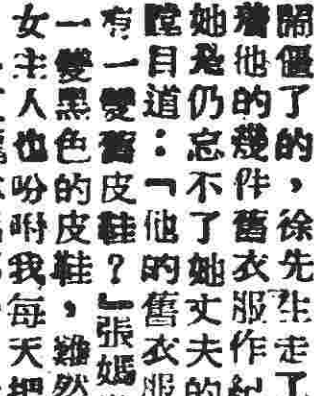 鬧僵了的，徐先生走了
着他的幾件舊衣服作紀
她是仍忘不了她丈夫的
瞠目道：「他的舊衣服
有一雙舊皮鞋？」張媽
一雙黑色的皮鞋，雖然
女主人也吩咐我每天把